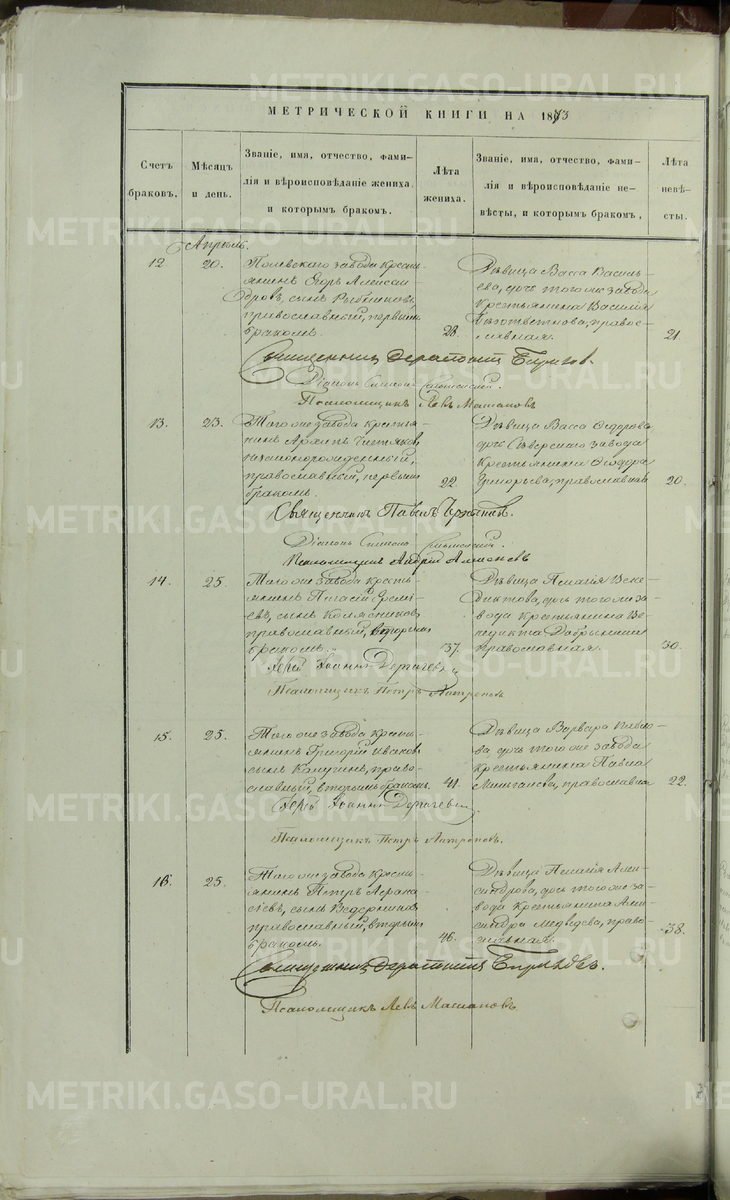 METRIKI.GASO-URAL.RU
МЕТРИЧЕСКОЙ КНИГИ НА 1873
Счетъ
браковъ.
Мѣсяцъ
и день.
Званіе, имя, отчество, фами-
лія и вѣроисповѣданіе жениха
и которымъ бракомъ.
Лѣта
жениха.
Званіе, имя, отчество, фами-
лія и вѣроисповѣданіе не-
вѣсты, и которымъ бракомъ,
Лѣта
невѣ-
сты.
Апрѣль.
12
20.
Полевскаго завода кресть-
янинъ Егоръ Алексан-
дровъ, сынъ
православный, первымъ
бракомъ.
23.
Дѣвица Васса Василь-
ева, дочь того же завода
крестьянина Василія
правос-
лавная.
21.
Священникъ
Діаконъ Симеонъ
Псаломщикъ Левъ
13.
23.
Того же завода кресть-
янинъ Архипъ
православный, первымъ
бракомъ.
22.
Дѣвица Васса Ѳедорова
дочь Сѣверскаго завода
крестьянина Ѳеодора
Григорьева, православная
20.
Священникъ Павелъ
Діаконъ Симеонъ
Псаломщикъ Андрей
14.
25.
Того же завода кресть-
янинъ
сынъ
православный, вторымъ
бракомъ.
37.
Дѣвица Пелагія Вене-
диктова, дочь того же за-
вода крестьянина Ве-
недикта Добрынина
православная.
30.
Іерей Іоаннъ Дергачевъ
Псаломщикъ Петръ
15.
25.
Того же завода кресть-
янинъ Григорій Ивановъ
сынъ Калугинъ, право-
славный, вторымъ бракомъ.
41.
Дѣвица Варвара Павло-
ва дочь того же завода
крестьянина Павла
православная
22.
Іерей Іоаннъ Дергачевъ
Псаломщикъ Петръ
16.
25.
Того же завода кресть-
янинъ Петръ Афана-
сьевъ, сынъ Ведерниковъ
православный, вторымъ
бракомъ.
46.
Дѣвица Пелагія Алек-
сандрова, дочь того же за-
вода крестьянина Алек-
сандра Медведева, право-
славная.
38.
Священникъ
Псаломщикъ Левъ